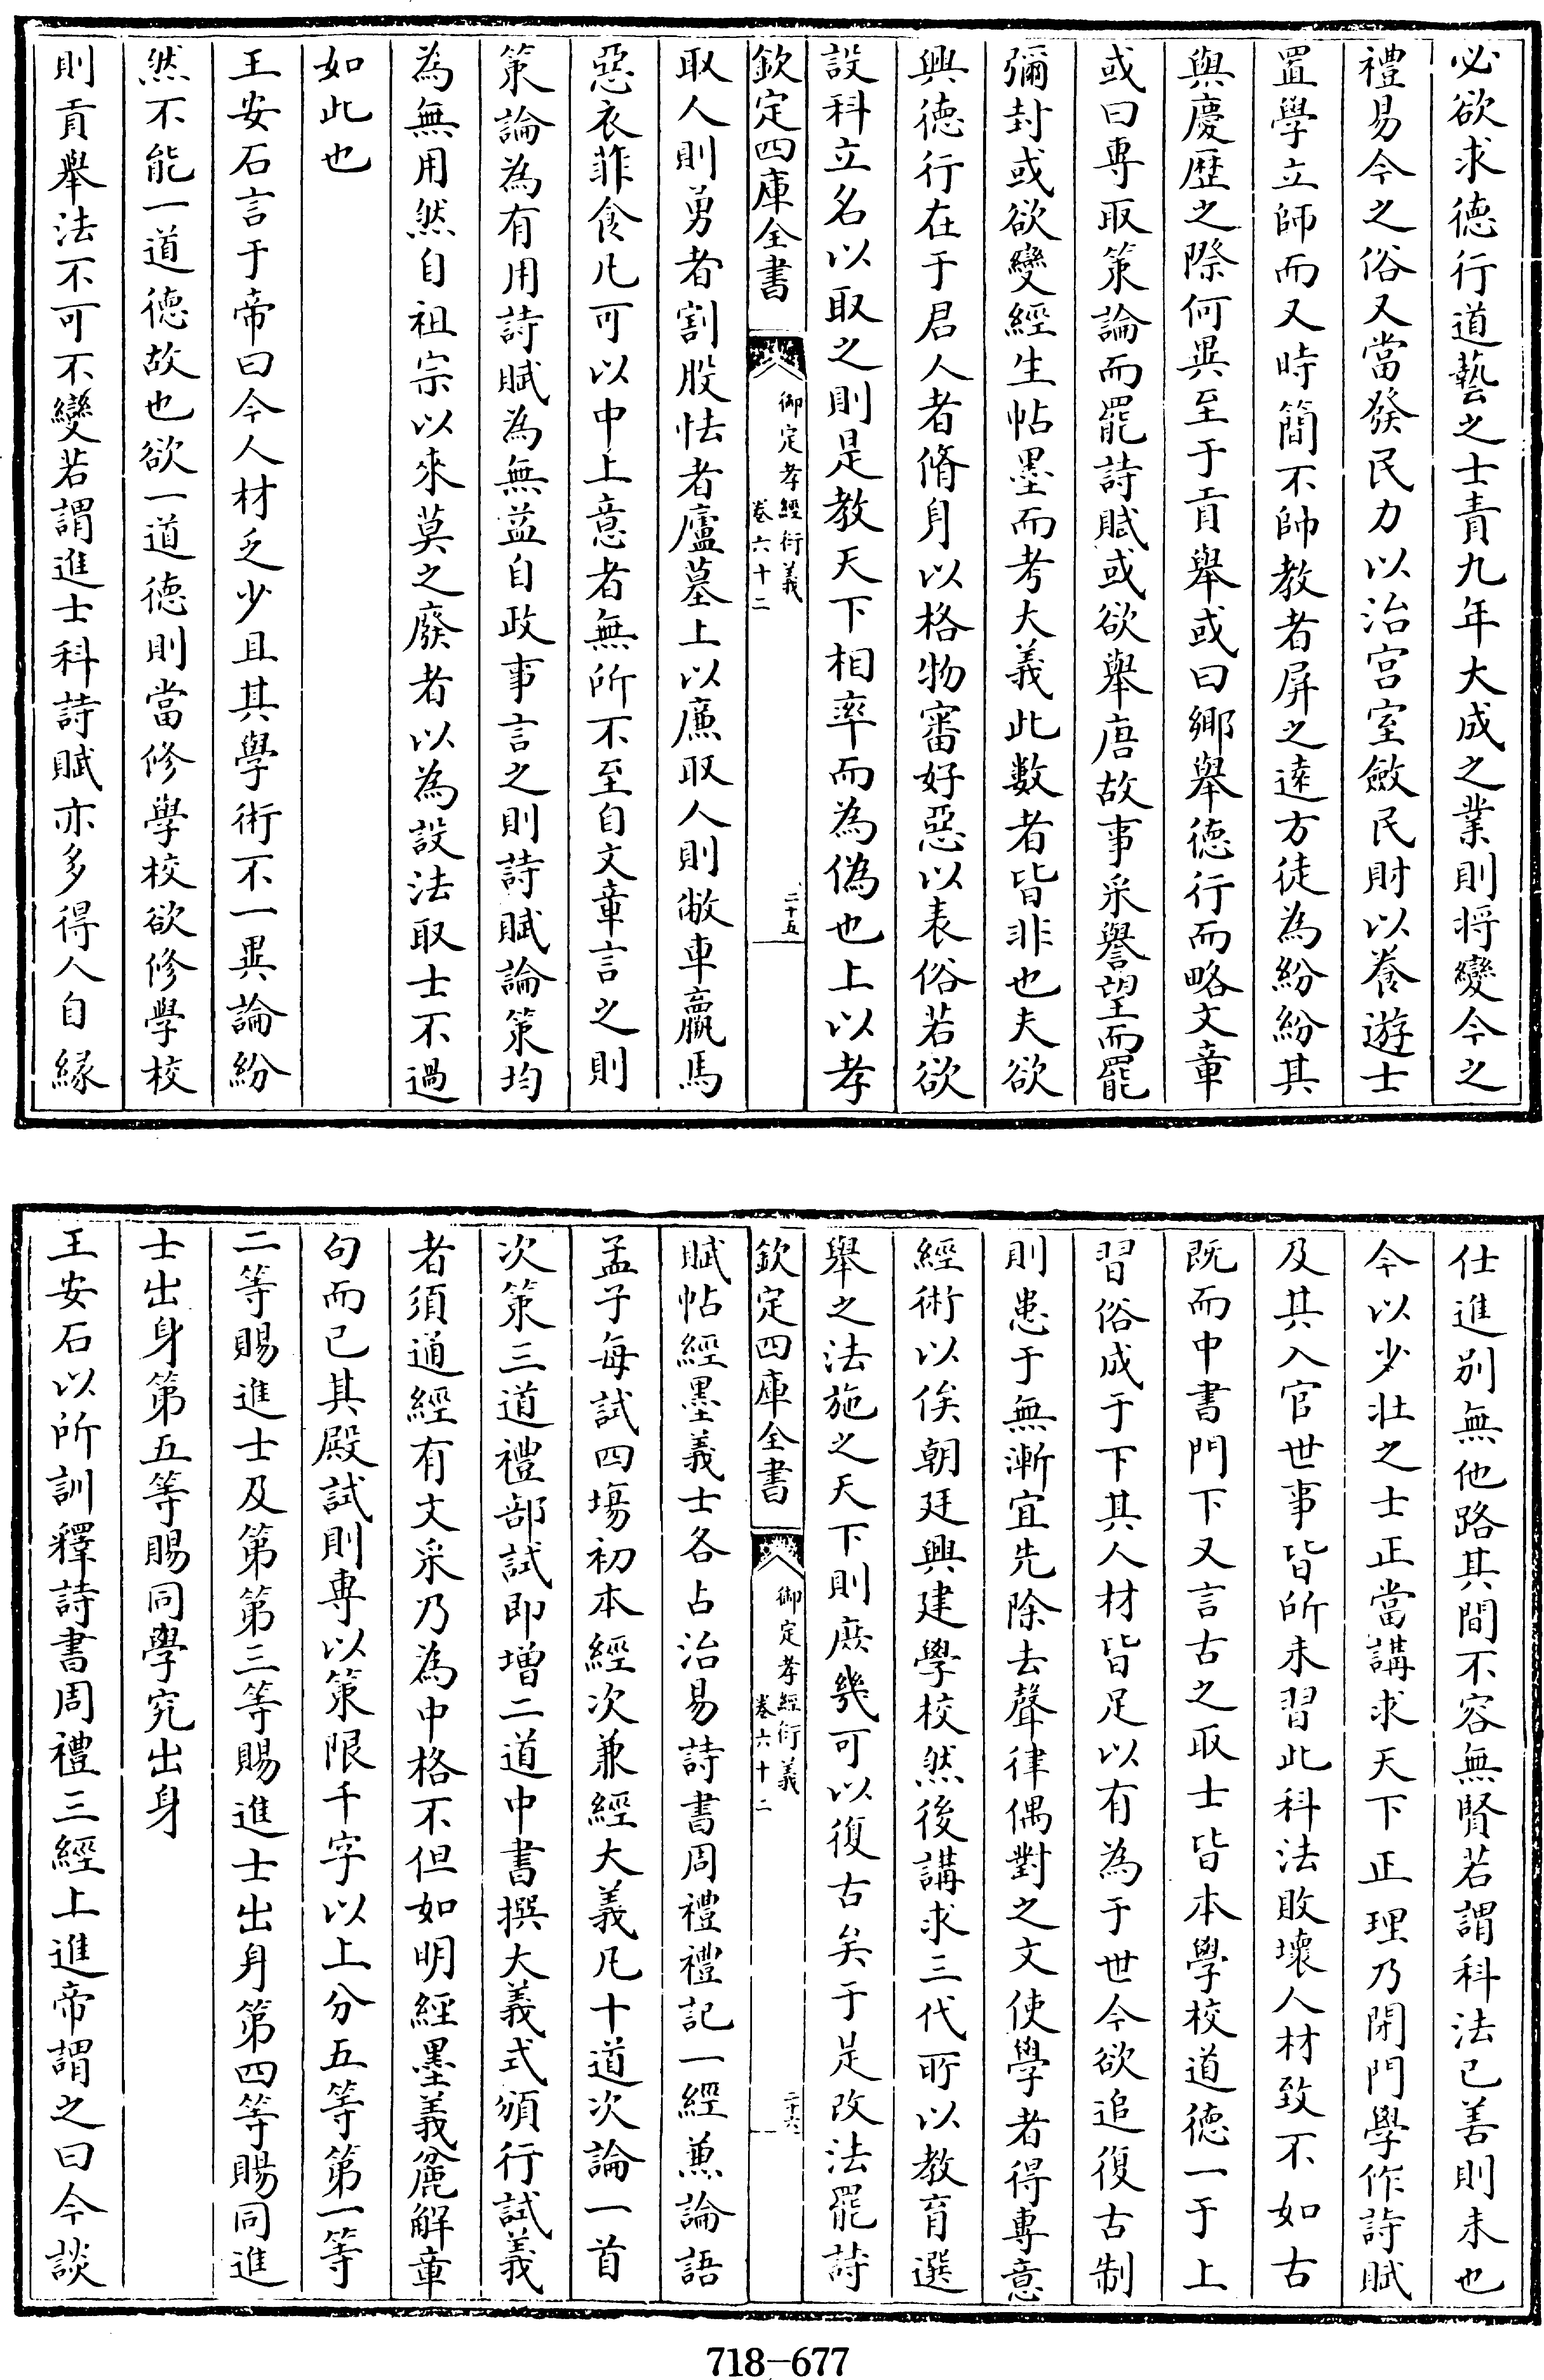 必欲求德行道藝之士責九年大成之業則将變今之
禮易今之俗又當發民力以治宫室斂民財以養遊士
置學立師而又時簡不帥教者屏之逺方徒為紛紛其
與慶歷之際何異至于貢舉或曰鄉舉徳行而略文章
或曰専取策論而罷詩賦或欲舉唐故事采譽望而罷
彌封或欲變經生帖墨而考大義此數者皆非也夫欲
興徳行在于君人者脩身以格物審好惡以表俗若欲
設科立名以取之則是教天下相率而為偽也上以孝
欽定四庫全書
御定孝經衍義
卷六十二
二十五
取人則勇者割股怯者廬墓上以廉取人則敝車羸馬
惡衣菲食凡可以中上意者無所不至自文章言之則
策論為有用詩賦為無益自政事言之則詩賦論策均
為無用然自祖宗以來莫之廢者以為設法取士不過
如此也
王安石言于帝曰今人材乏少且其學術不一異論紛
然不能一道徳故也欲一道徳則當修學校欲修學校
則貢舉法不可不變若謂進士科詩賦亦多得人自緣
仕進别無他路其間不容無賢若謂科法已善則未也
今以少壯之士正當講求天下正理乃閉門學作詩賦
及其入官世事皆所未習此科法敗壞人材致不如古
既而中書門下又言古之取士皆本學校道徳一于上
習俗成于下其人材皆足以有為于世今欲追復古制
則患于無漸宜先除去聲律偶對之文使學者得専意
經術以俟朝廷興建學校然後講求三代所以教育選
舉之法施之天下則庶幾可以復古矣于是改法罷詩
欽定四庫全書
御定孝經衍義
卷六十二
二十六
賦帖經墨義士各占治易詩書周禮禮記一經兼論語
孟子每試四塲初本經次兼經大義凡十道次論一首
次策三道禮部試即增二道中書撰大義式頒行試義
者須通經有文采乃為中格不但如明經墨義麄解章
句而已其殿試則専以策限千字以上分五等第一等
二等賜進士及第第三等賜進士出身第四等賜同進
士出身第五等賜同學究出身
王安石以所訓釋詩書周禮三經上進帝謂之曰今談
718-677